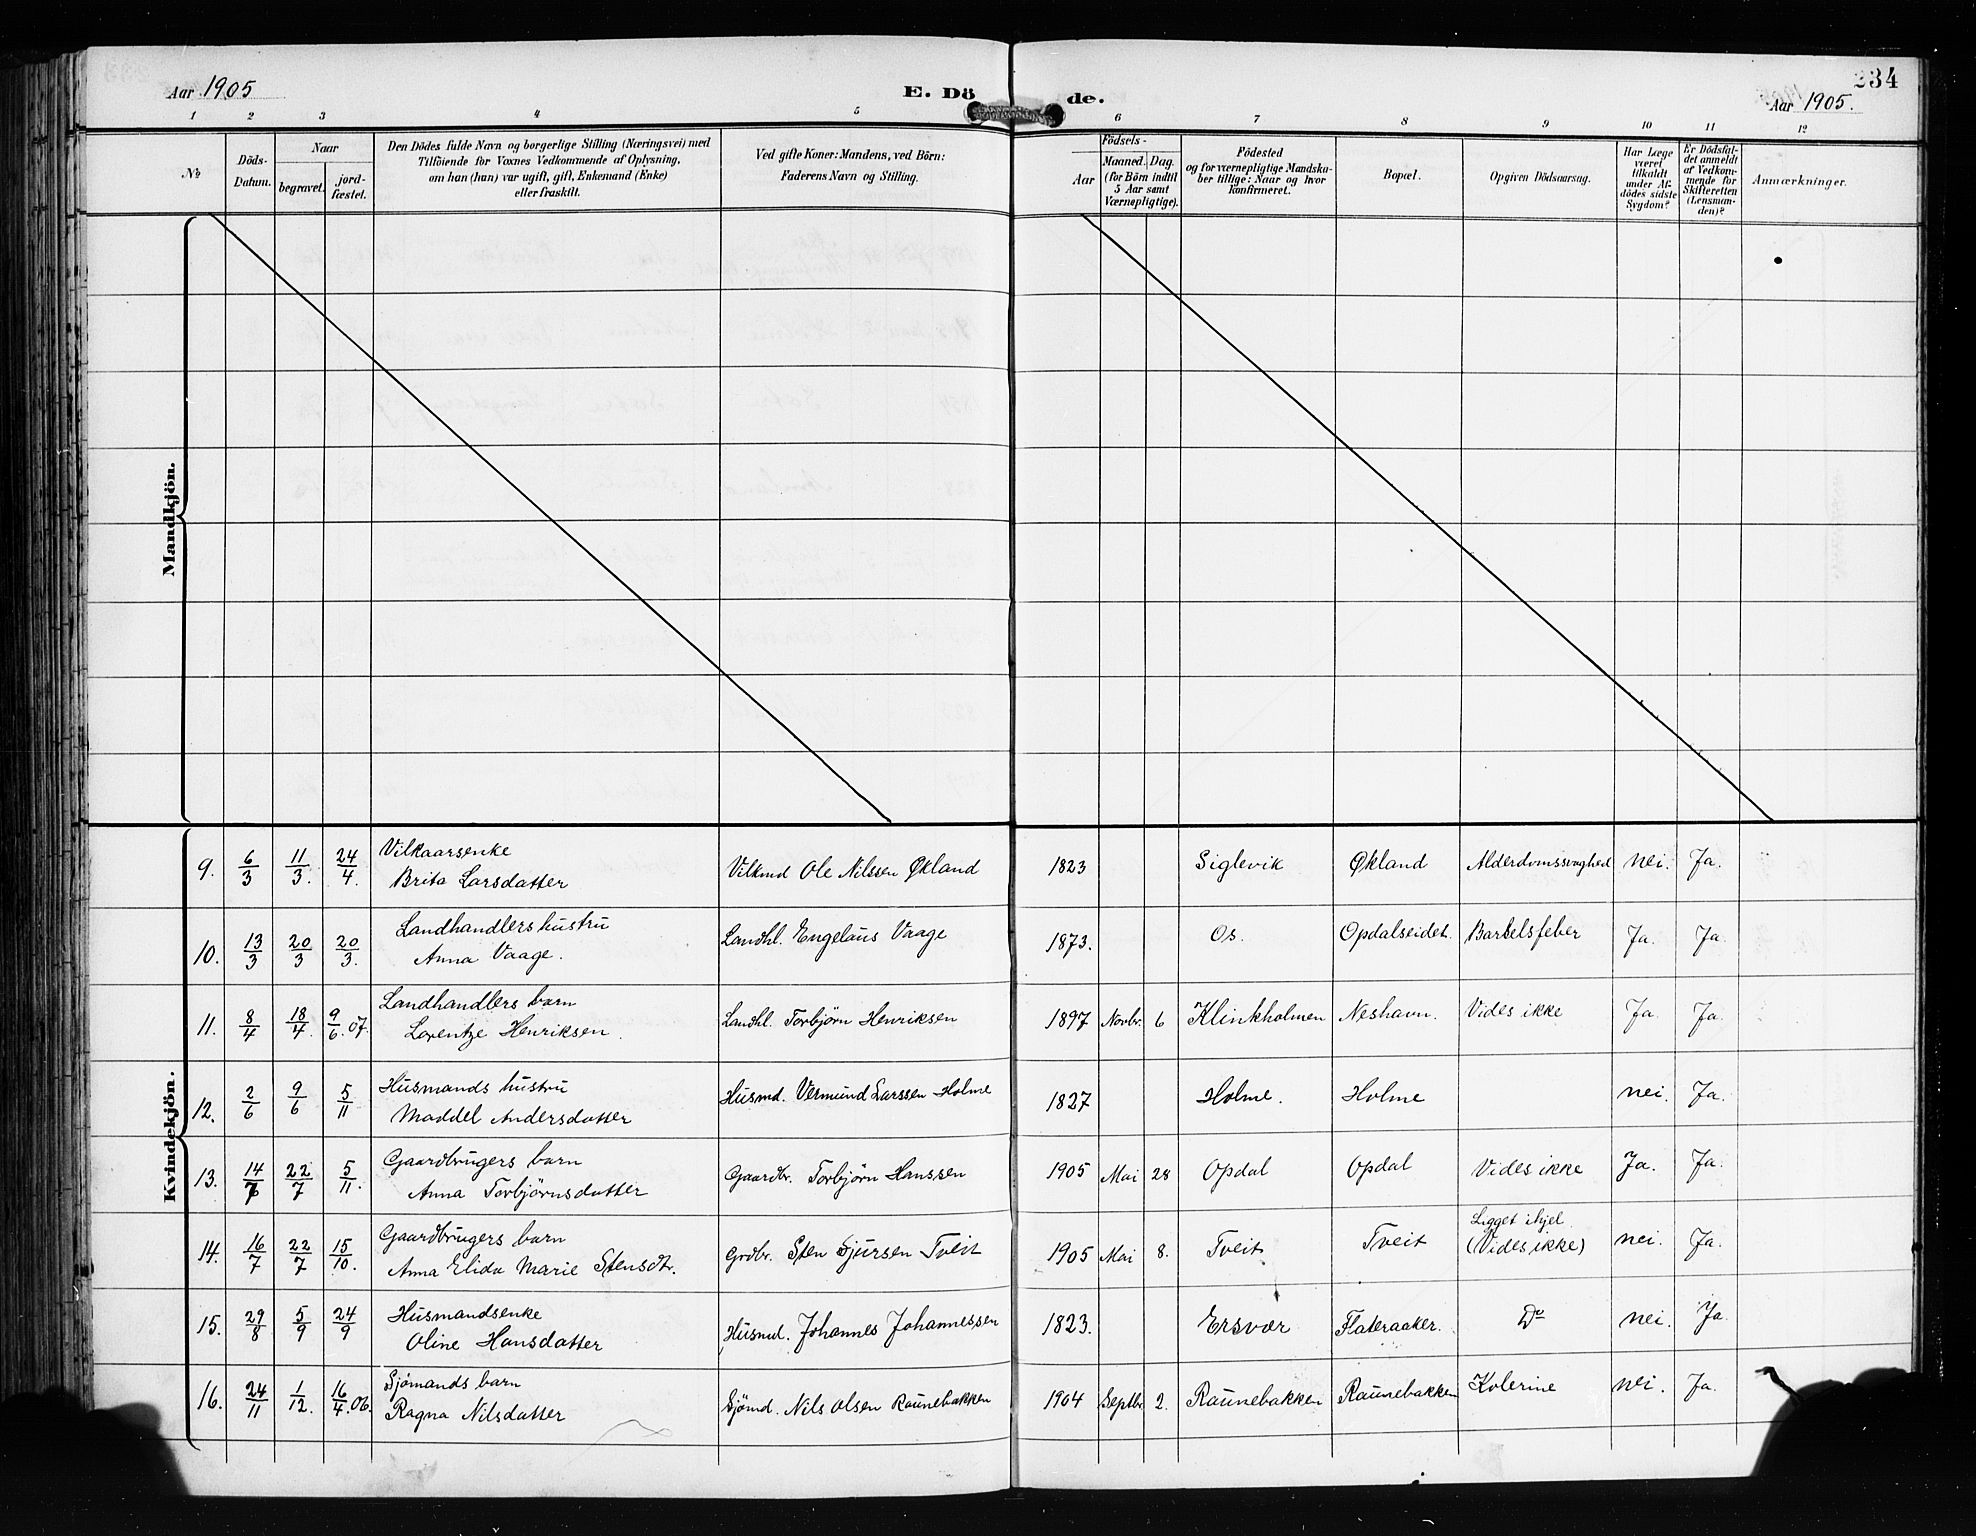 Aar 1905
E. Dö
de.
234
Aar 1905.
1 2 3 4 5 6 7 8 9 10 11 12
№
Döds-
Datum.
Naar
begravet.
jord-
fæstet.
Den Dödes fulde Navn og borgerlige Stilling (Næringsvei) med
Tilföiende for Voxnes Vedkommende af Oplysning,
om han (hun) var ugift, gift, Enkemand (Enke)
eller fraskilt.
Ved gifte Koner: Mandens, ved Börn:
Faderens Navn og Stilling.
Födsels-
Aar
Maaned. Dag.
(for Börn indtil
5 Aar samt
Værnepligtige).
Födested
og for værnepligtige Mandska-
ber tillige: Naar og hvor
konfirmeret.
Bopæl.
Opgiven Dödsaarsag.
Har Læge
været
tilkaldt
under Af-
dödes sidste
Sygdom?
Er Dödsfal-
det anmeldt
af Vedkom-
mende for
Skifteretten
(Lensman-
den)?
Anmærkninger.
Mandkjön.
Kvindekjön.
9. 6/3 11/3. 24/4. Vilkaarsenke
Brita Larsdatter Vilkmd Ole Nilssen Økland 1823 Siglevik Økland Alderdomssvaghed nei. Ja.
10. 13/3 20/3 20/3. Landhandlers hustru
Anna Vaage. Landhl. Engelaus Vaage 1873. Os. Opdalseidet. Barselsfeber Ja. Ja.
11. 8/4 18/4. 9/6.07. Landhandlers barn
Lorentze Henriksen. Landhl. Torbjörn Henriksen 1897 Novbr. 6 Klinkholmen Neshavn. Vides ikke Ja. Ja.
12. 2/6 9/6 5/11 Husmands hustru
Maddel Andersdatter Husmd. Vermund Larssen Holme 1827 Holme. Holme nei. Ja.
13. 14/7 22/7 5/11. Gaardbrugers barn
Anna Torbjörnsdatter Gaardbr. Torbjörn Hanssen 1905 Mai 28 Opdal Opdal Vides ikke Ja. Ja.
14. 16/7 22/7 15/10. Gaardbrugers barn
Anna Elida Marie Stensdtr. Grdbr. Sten Sjursen Tveit 1905 Mai 8. Tveit Tveit Ligget ihjel
(Vides ikke) nei. Ja.
15. 29/8 5/9 24/9 Husmandsenke
Oline Hansdatter Husmd. Johannes Johannessen 1823. Ersvær Flateraaker. Do nei. Ja.
16. 24/11 1/12. 16/4.06. Sjömands barn
Ragna Nilsdatter Sjömd. Nils Olsen Raunebakken 1904 Septbr. 2. Raunebakken Raunebakken Kolerine nei. Ja.